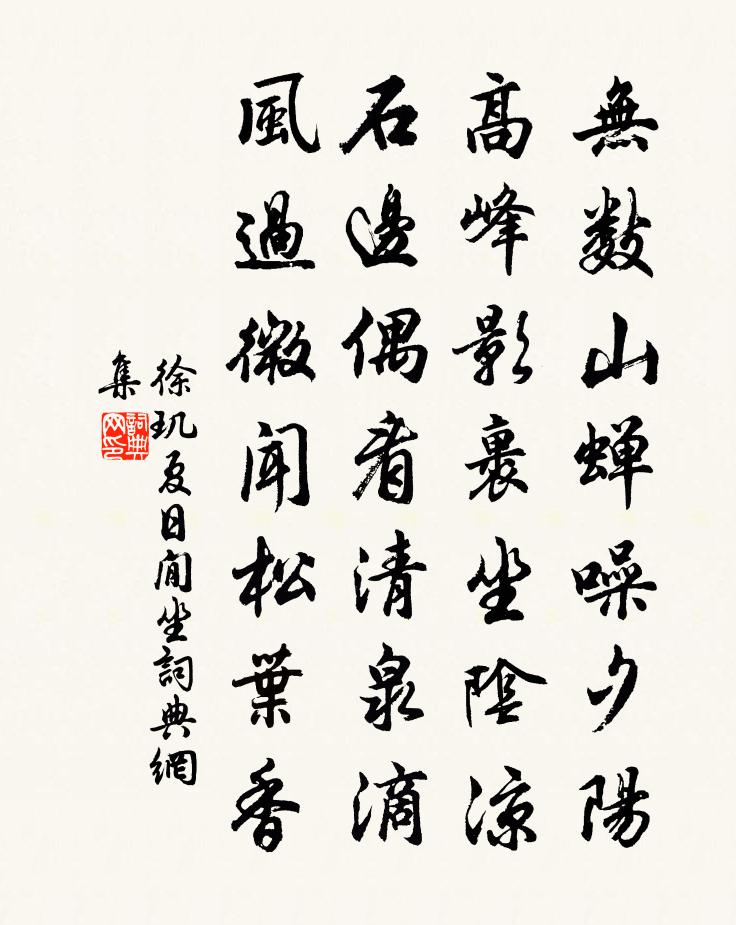 無數山蟬噪夕陽
高峰影裏坐陰涼
石邊偶看清泉滴
風過微聞松葉香
徐玑夏日閒坐詞典網
集
詞典
网印